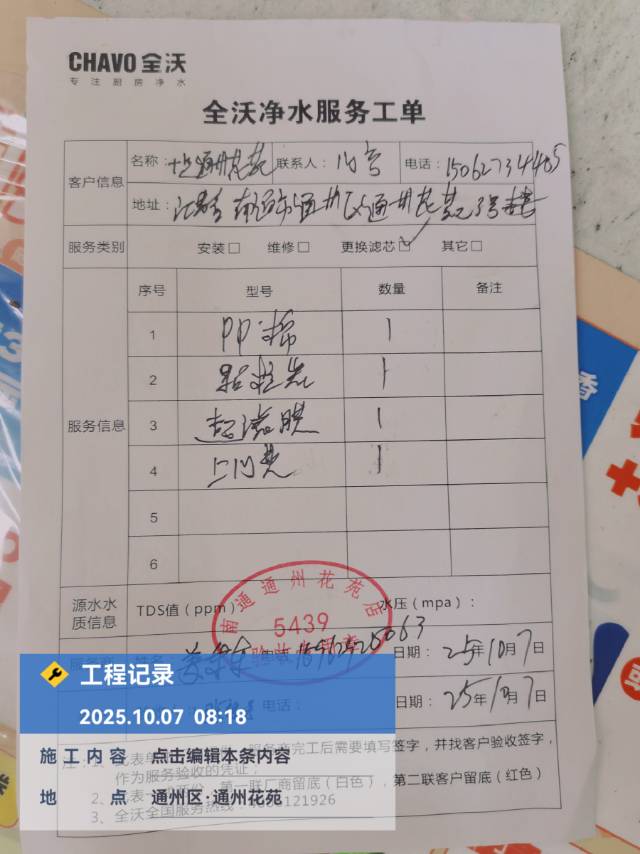 CHAVO 全沃
专注厨房净水
全沃净水服务工单
客户信息
名称： 通州花苑 联系人： 电话：
地址： 南通市通州区通州花苑
服务类别 安装□ 维修□ 更换滤芯☑ 其它□
服务信息
序号 型号 数量 备注
1 PP棉 1
2 颗粒炭 1
3 超滤膜 1
4 上门费 1
5
6
源水水质信息 TDS值（ppm） 水压（mpa）：
南通通州花苑店
5439
日期： 25年10月7日
电话： 25年10月7日
工程记录
2025.10.07 08:18
施工内容 点击编辑本条内容
地点 通州区·通州花苑
完工后需要填写签字，并找客户验收签字，
作为服务验收的凭证，
第一联厂商留底（白色），第二联客户留底（红色）
3、全沃全国服务热线：